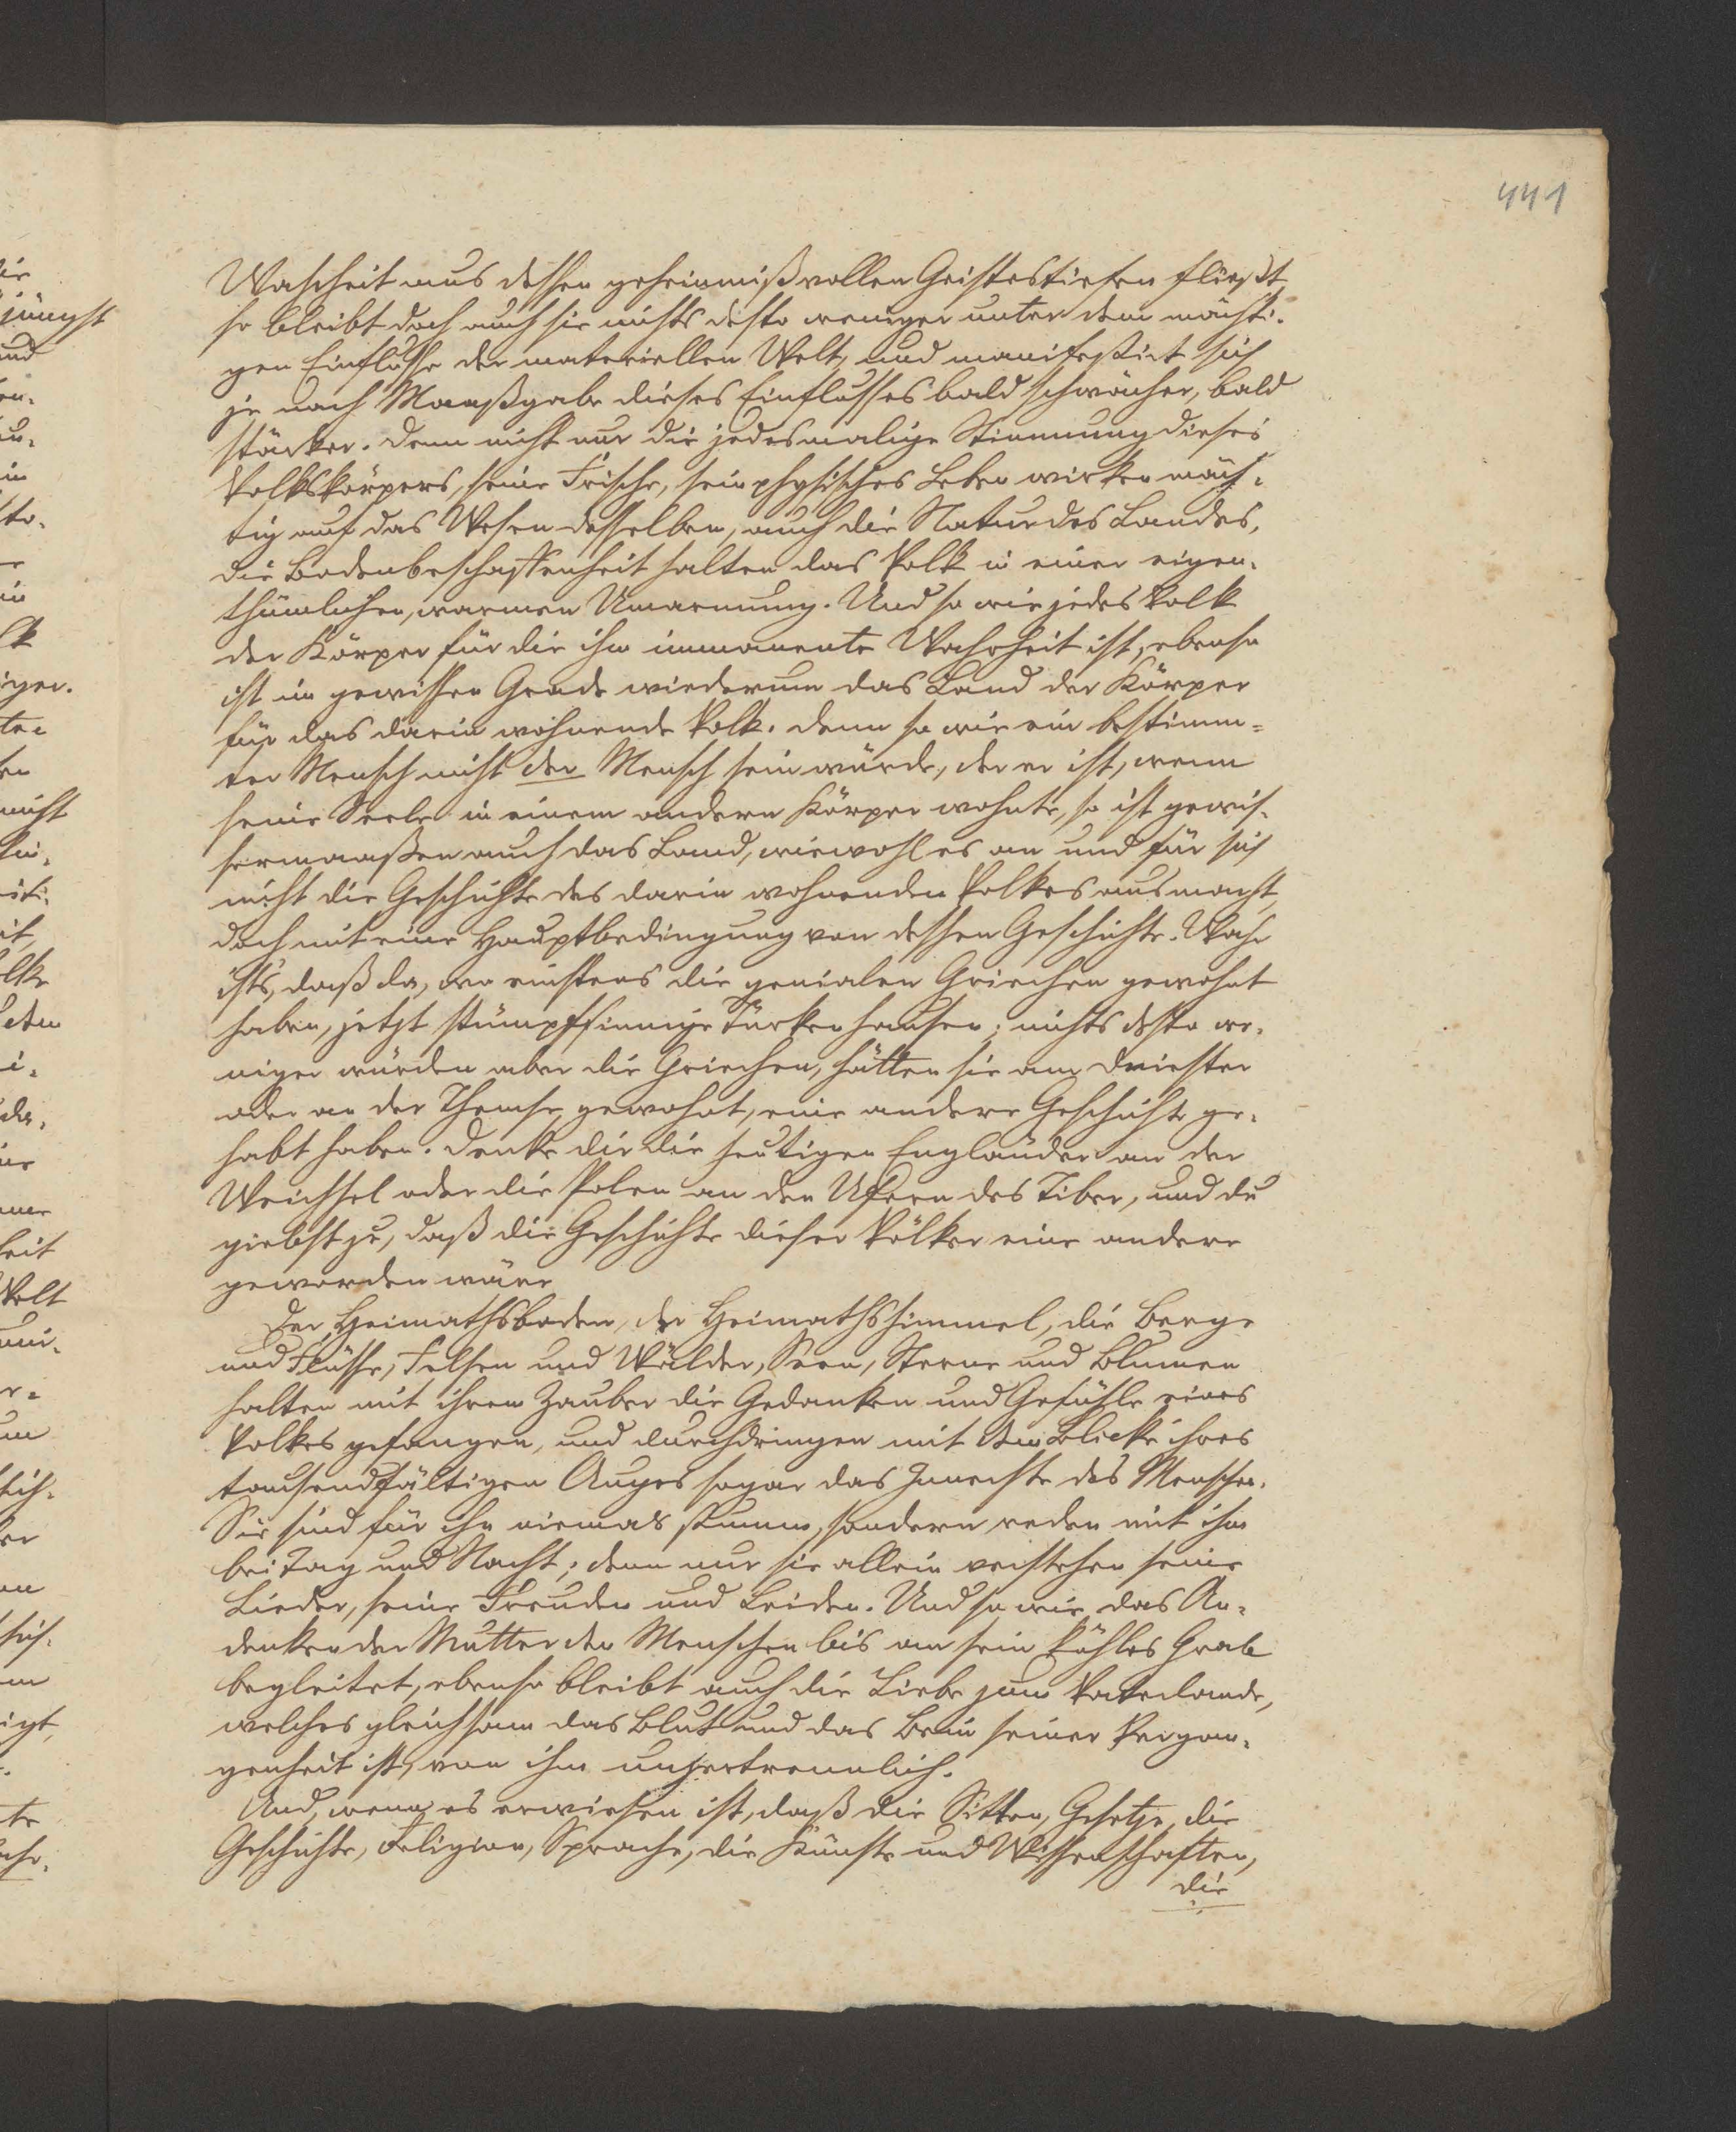 441
Wahrheit aus dessen geheimnißvollen Geistestiefen fließt,
so bleibt doch auch sie nichts desto weniger unter dem mächti-
gen Einflusse der materiellen Welt, und manifestirt sich
je nach Maaßgabe dieses Einflusses bald schwächer, bald
stärker. Denn nicht nur die jedesmalige Stimmung dieses
Volkskörpers, seine Frische, sein physisches Leben wirken mäch-
tig auf das Wesen desselben, auch die Natur des Landes,
die Bodenbeschaffenheit halten das Volk in einer eigen-
thümlichen, warmen Umarmung. Und so wie jedes Volk
der Körper für die ihm immanente Wahrheit ist, ebenso
ist im gewissen Grade wiederum das Land der Körper
für das darin wohnende Volk. Denn so wie ein bestimm-
ter Mensch nicht der Mensch sein würde, der er ist, wenn
seine Seele in einem andern Körper wohnte, so ist gewis-
sermaaßen auch das Land, wiewohl es an und für sich
nicht die Geschichte des darin wohnenden Volkes ausmacht,
doch mit eine Hauptbedingung von dessen Geschichte. Wahr
ists, daß da, wo einstens die genialen Griechen gewohnt
haben, jetzt stumpfsinnige Türken hausen; nichts desto we-
niger würden aber die Griechen, hätten sie am Dniester
oder an der Themse gewohnt, eine andere Geschichte ge-
habt haben. Denke dir die heutigen Engländer an der
Weichsel oder die Polen an den Ufern des Tiber, und du
giebst zu, daß die Geschichte dieser Völker eine andere
geworden wäre
Der Heimathsboden, der Heimathshimmel, die Berge
und Flüsse, Felsen und Wälder, Seen, Sterne und Blumen
halten mit ihrem Zauber die Gedanken und Gefühle eines
Volkes gefangen, und durchdringen mit dem Blicke ihres
tausendfältigen Auges sogar das Innerste des Menschen.
Sie sind für ihn niemals stumm, sondern reden mit ihm
bei Tag und Nacht; denn nur sie allein verstehen seine
Lieder, seine Freuden und Leiden. Und so wie das An-
denken der Mutter den Menschen bis an sein kühles Grab
begleitet, ebenso bleibt auch die Liebe zum Vaterlande,
welches gleichsam das Blut und das Bein seiner Vergan-
genheit ist, von ihm unzertrennlich.
Und, wenn es erwiesen ist, daß die Sitten, Gesetze, die
Geschichte, Religion, Sprache, die Künste und Wissenschaften,
die